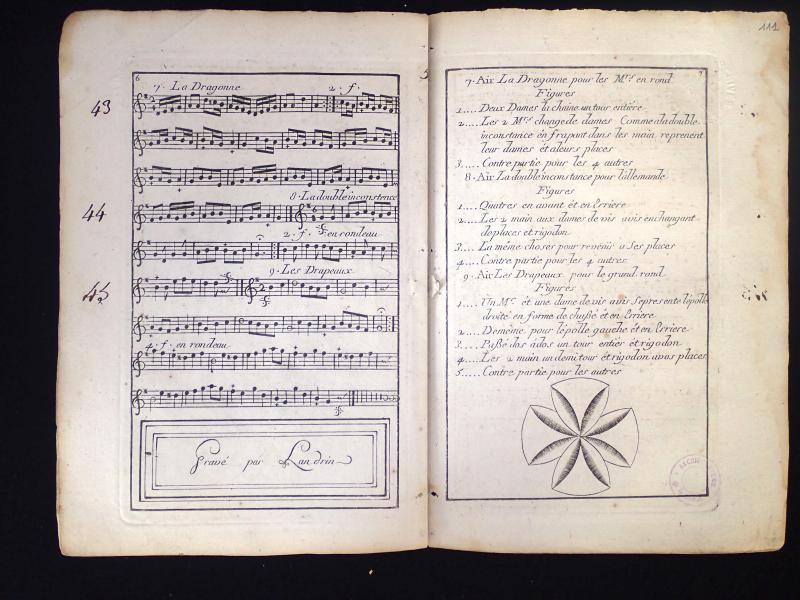 6
7. La Dragonne 2. f.
43
8. La double inconstence
44
2. f. en rondeau
9. Les Drapeaux
45
4. f. en rondeau
Gravé par Landrin
111
7
7. Air La Dragonne pour les Mrs. en rond
Figures
1.... Deux Dames la chaine un tour entiére
2.... Les 2 Mrs. change de dames Comme a la double
inconstance en frapant dans les main reprenent
leur dames et a leurs places
3.... Contre partie pour les 4 autres
8. Air La double inconstance pour l'allemande
Figures
1.... Quatres en avant et en Erriere
2.... Les 2 main aux dames de vis avis en changant
de places et rigodon
3.... La même choses pour revenir a Ses places
4.... Contre partie pour les 4 autres
9. Air Les Drapeaux pour le grand rond
Figures
1.... Un Mr. et une dame de vis avis Se presente l'épolle
droite en forme de chassé et en Erriere
2.... De même pour l'épolle gauche et en Erriere
3.... Passé dos a dos un tour entier et rigodon
4.... Les 2 main un demi tour et rigodon a vos places
5.... Contre partie pour les autres